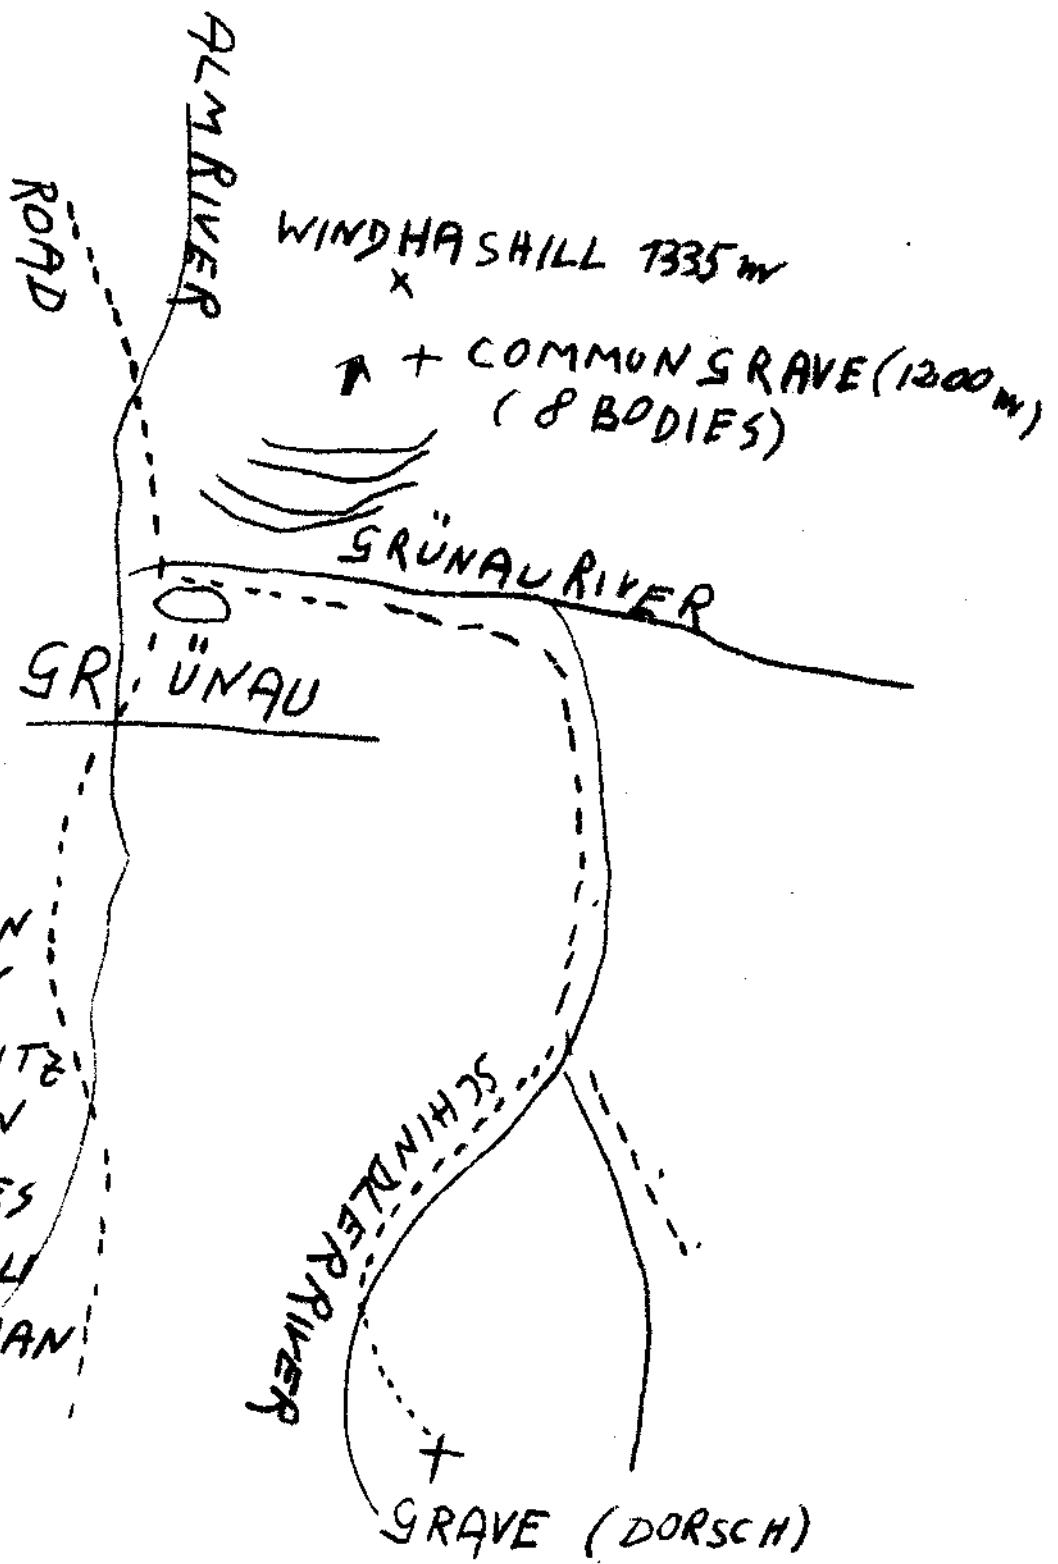 ALM RIVER
ROAD
WINDHASHILL 1335 m
x
+ COMMON GRAVE (1200 m)
(8 BODIES)
GRÜNAU RIVER
GRÜNAU
SCHINDLER RIVER
+
GRAVE (DORSCH)